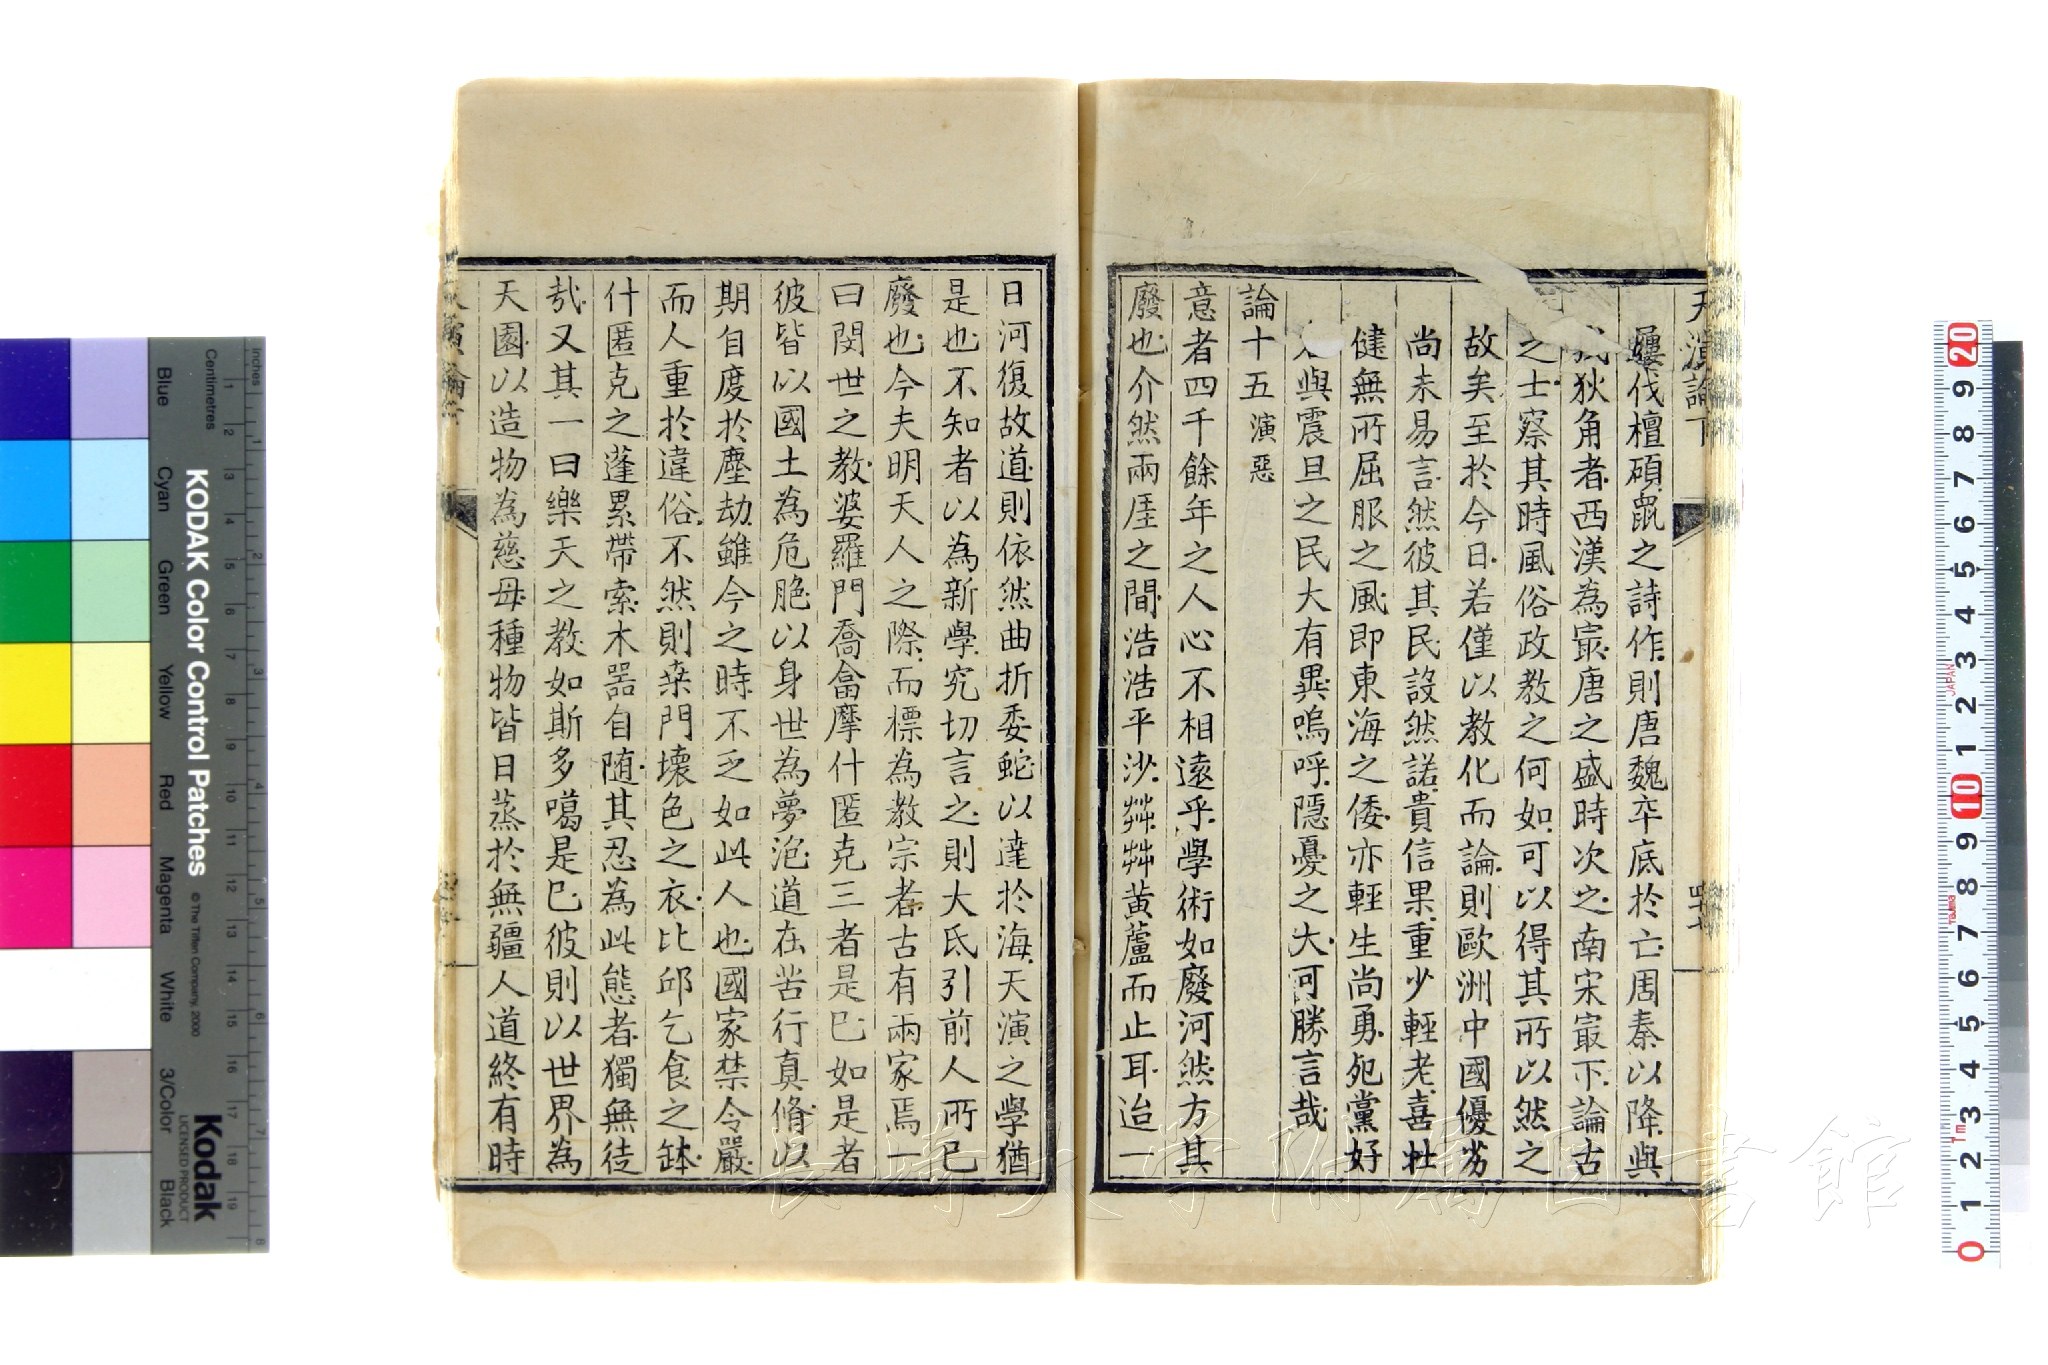 天演論下
伐檀碩鼠之詩作則唐魏卒底於亡周秦以降與
狄角者西漢為㝡唐之盛時次之南宋㝡下論古
之士察其時風俗政教之何如可以得其所以然之
故矣至於今日若僅以教化而論則歐洲中國優劣
尚未易言然彼其民設然諾貴信果重少輕老喜壯
健無所屈服之風即東海之倭亦輕生尚勇死黨好
與震旦之民大有異嗚呼隱憂之大可勝言哉
論十五 演惡
意者四千餘年之人心不相遠乎學術如廢河然方其
廢也介然兩厓之間浩浩平沙茻茻黃蘆而止耳迨一
日河復故道則依然曲折委蛇以達於海天演之學猶
是也不知者以為新學究切言之則大氐引前人所已
廢也今夫明天人之際而標為教宗者古有兩家焉一
曰閔世之教婆羅門喬荅摩什匿克三者是已如是者
彼皆以國土為危脆以身世為夢泡道在苦行真脩以
期自度於塵劫雖今之時不乏如此人也國家禁令嚴
而人重於違俗不然則桒門壞色之衣比邱乞食之缽
什匿克之蓬累帶索木器自隨其忍為此態者獨無徒
㢤又其一曰樂天之教如斯多噶是已彼則以世界為
天園以造物為慈母種物皆日蒸於無疆人道終有時
長崎大学附属図書館
KODAK Color Control Patches
© The Tiffen Company, 2000
Kodak
LICENSED PRODUCT
Inches
Centimetres
Blue
Cyan
Green
Yellow
Red
Magenta
White
3/Color
Black
1 2 3 4 5 6 7 8
1 2 3 4 5 6 7 8 9 10 11 12 13 14 15 16 17 18 19
20 9 8 7 6 5 4 3 2 1 10 9 8 7 6 5 4 3 2 1 0
JAPAN
Tajima